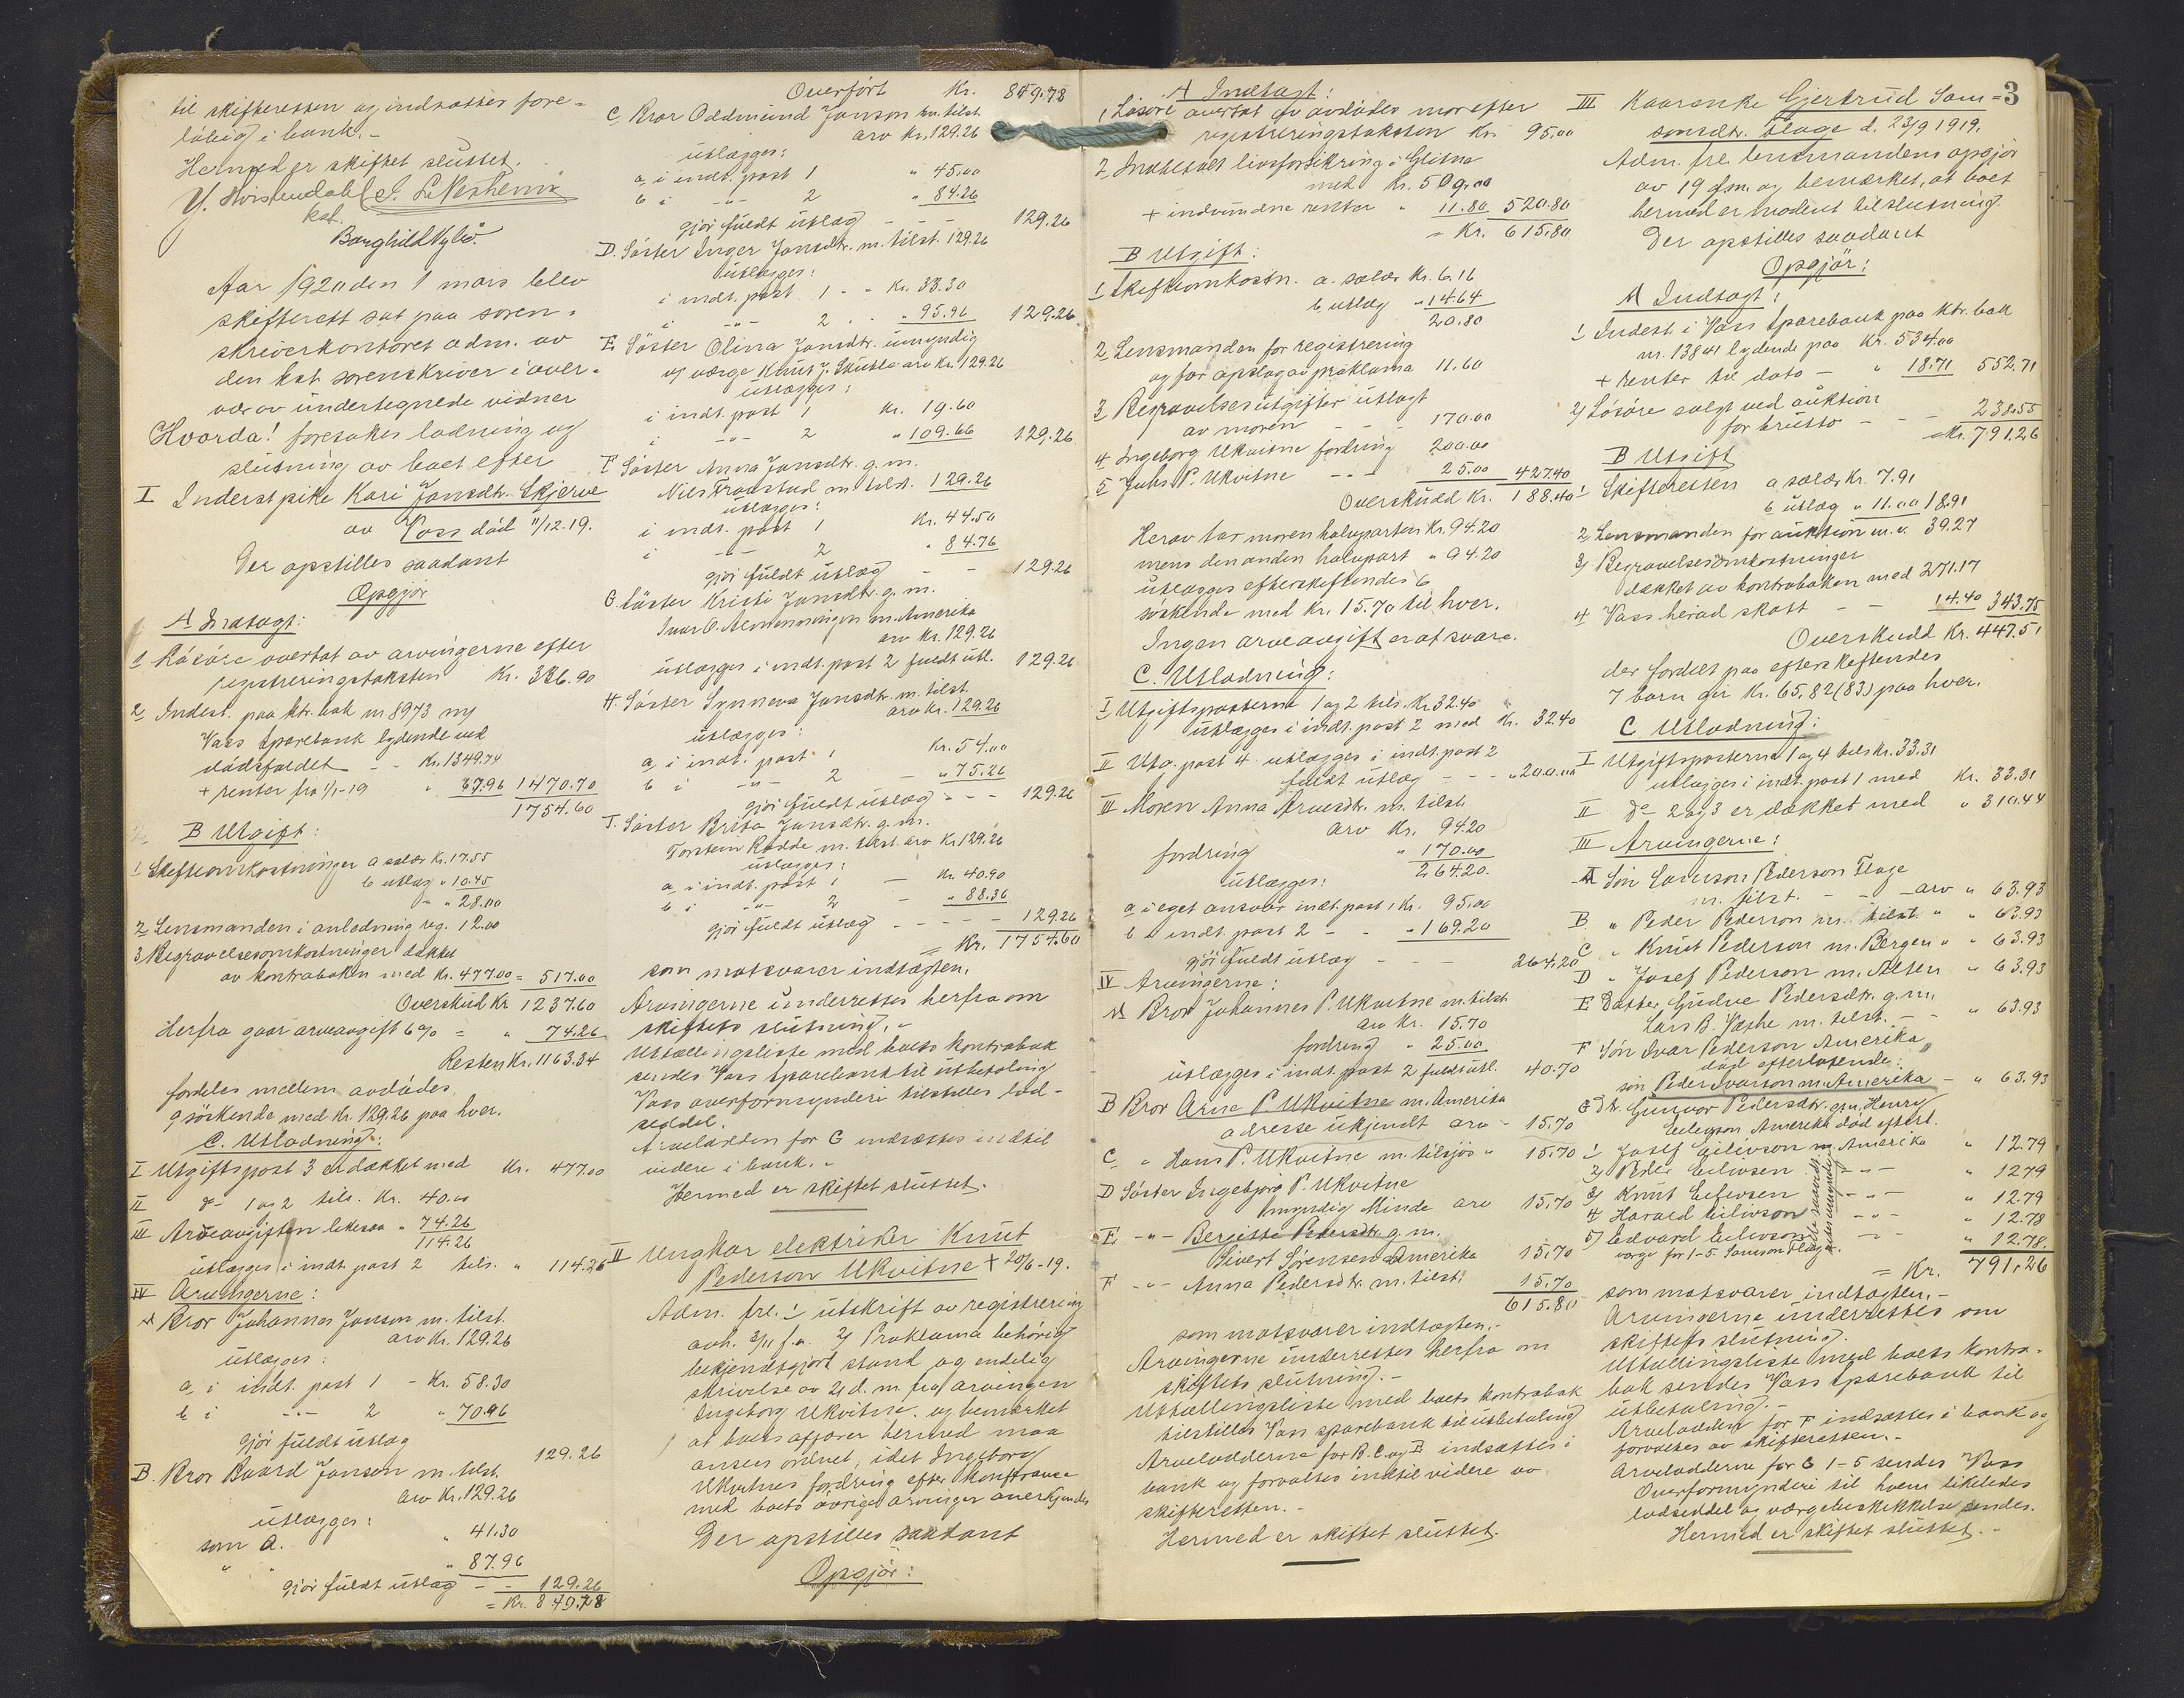 til skifteretten og indsættes fore=
löbig i bank.-
Hermed er skiftet sluttet.
Borghild Nybö.
Aar 1920 den 1 mars blev
skifterett sat paa soren=
skriverkontoret adm. av
den kst sorenskriver i over=
vær av undertegnede vidner
Hvorda! foretokes lodning og
slutning av boet efter
I Inderst pike Kari Jonsdtr. Skjerve
av Voss död 11/12-19.
Der opstilles saadant
Opgjör
A Indtægt:
1 Lösöre overtat av arvingerne efter
registreringstaksten Kr. 386.90
2 Indest. paa ktr. bok nr 8973 ny
Voss Sparebank lydende ved
dödsfaldet - - Kr. 1349.74
+ renter fra 1/1-19 " 67.96 1470.70
1754.60
B Utgift:
1 Skifteomkostninger a salær Kr. 17.55
b utlæg " 10.45
" 28.00
2 Lensmanden i anledning reg. 12.00
3 Begravelsesomkostninger dækket
av kontraboken med Kr. 477.00 = 517.00
Overskud Kr 1237.60
Herfra gaar arveavgift 6% = " 74.26
Resten Kr. 1163.34
fordeles mellem avdödes
9 söskende med Kr. 129.26 paa hver.
C. Utlodning:
I Utgiftspost 3 er dækket med Kr. 477.00
II do 1 og 2 tils. Kr. 40.00
III Arveavgiften likesaa " 74.26
114.26
utlægges i indt. post 2 tils. " 114.26
IV Arvingerne:
A Bror Johannes Jonson m. tilst.
arv Kr. 129.26
utlægges:
a i indt. post 1 - Kr. 58.30
b i -"- 2 " 70.96
gjör fuldt utlæg 129.26
B. Bror Baard Jonson m. tilst.
arv Kr. 129.26
utlægges:
som a. " 41.30
" " " 87.96
gjör fuldt utlæg - - 129.26
= Kr. 849.78
Overfört Kr. 849.78
C Bror Oddmund Jonson m. tilst.
arv Kr. 129.26
utlægges:
a i indt. post 1 " 45.00
b i -"- 2 " 84.26
gjör fuldt utlæg - - - 129.26
D. Söster Inger Jonsdtr. m. tilst. 129.26
utlægges:
i indt. post 1 - " Kr. 33.30
i -"- 2 - " 95.96 129.26
E Söster Olina Jonsdtr. umyndig
v/ værge Knut J. Skutle arv Kr. 129.26
utlægges:
i indt. post 1 Kr. 19.60
i -"- 2 " 109.66 129.26
F Söster Anna Jonsdtr. g. m.
Nils m. tilst. 129.26
utlægges:
i indt. post 1 Kr. 44.50
i -"- 2 " 84.76
gjör fuldt utlæg - - 129.26
G. Söster Kristi Jonsdtr. g. m.
Ivar O. m. Amerika
arv Kr. 129.26
utlægges i indt. post 2 fuldt utl. 129.26
H. Söster Synneva Jonsdtr. m. tilst.
arv Kr. 129.26
utlægges:
a i indt. post 1 Kr. 54.00
b i -"- 2 - " 75.26
gjör fuldt utlæg - - - 129.26
J. Söster Brita Jonsdtr. g. m.
Torstein Rødde m. tilst. arv Kr. 129.26
utlægges:
a i indt. post 1 - Kr 40.90
b i -"- 2 - " 88.36
gjör fuldt utlæg - - - - 129.26
= Kr. 1754.60
som motsvarer indtægten.
Arvingerne underrettes herfra om
skiftets slutning.-
Utbetalingsliste med boets kontrabok
sendes Voss Sparebank til utbetaling
Voss overformynderi tilstilles lod=
seddel.
Arvelodden for G indsættes indtil
videre i bank.-
Hermed er skiftet sluttet.
II Ungkar elektriker Knut
Pederson Ukvitne + 20/6-19.
Adm. frl. 1/ utskrift av registrering
avh. 3/11 f.a. 2/ Proklama behörig
bekjendtgjort stand og endelig
skrivelse av 2/ d. m. fra arvingen
Ingeborg Ukvitne, og bemerket
at boets affærer hermed maa
ansees ordnet, idet Ingeborg
Ukvitnes fordring efter konferance
med boets övrige arvinger anerkjendes
Der opstilles saadant
Opgjör:
A Indtægt:
1 Lösöre overtat av avdödes mor efter
registreringstaksten Kr. 95.00
2 Indbetalt livsforsikring i Glitne
med Kr. 509.00
+ indvundne renter " 11.80 520.80
= Kr. 615.80
B Utgift:
1 Skifteomkostn. a. salær Kr. 6.16
b utlæg " 14.64
20.80
2 Lensmanden for registrering
og for opslag av proklama 11.60
3 Begravelsesutgifter utlagt
av moren - - - 170.00
4 Ingeborg Ukvitne fordring 200.00
5 Johs P. Ukvitne -"- 25.00 427.40
Overskudd Kr. 188.40
Herav tar moren halvparten Kr. 94.20
mens den anden halvpart " 94.20
utlægges efterskeftendes 6
söskende med Kr. 15.70 til hver.
Ingen arveavgift er at svare.
C. Utlodning:
I Utgiftsposterne 1 og 2 tils. Kr. 32.40
utlægges i indt. post 2 med Kr. 32.40
II Utg. post 4 utlægges i indt. post 2
fuldt utlæg - - - " 200.00
III Moren Anna Arnesdtr. m. tilst.
arv Kr. 94.20
fordring " 170.00
264.20.
utlægges:
a i eget ansvar indt. post 1 Kr. 95.00
b i indt. post 2 - - " 169.20
gjör fuldt utlæg - - - 264.20
IV Arvingerne:
A Bror Johannes P. Ukvitne m. tilst.
arv Kr. 15.70
fordring " 25.00
utlægges i indt. post 2 fuldt utl. 40.70
B Bror Arne P. Ukvitne m. Amerika
adresse ukjendt arv - 15.70
C. " Hans P. Ukvitne m. tilsjös " 15.70
D Söster Ingebjörg P. Ukvitne
myndig Minde arv 15.70
E -"- Bergitte Pedersdtr. g. m.
Sivert Sørensen Amerika 15.70
F -"- Anna Pedersdtr. m. tilst. 15.70
615.80
som motsvarer indtægten.-
Arvingerne underrettes herfra om
skiftets slutning.-
Utbetalingsliste med boets kontrabok
tilstilles Voss sparebank til utbetaling
Arvelodderne for B. C. og E indsættes i
bank og forvaltes indtil videre av
skifteretten.-
Hermed er skiftet sluttet.
3
III Kaarenke Gjertrud Sam=
sonsdtr. Flage d. 23/9 1919.
Adm. frl. lensmandens opgjör
av 19 f.m. og bemerket, at boet
hermed er modent til slutning.
Der opstilles saadant
Opgjör:
A Indtægt:
1 Indest. i Voss Sparebank paa ktr. bok
nr. 13841 lydende paa Kr. 534.00
+ renter til dato - " 18.71 552.71
2/ Lösöre solgt ved auktion
for brutto - - - 238.55
= Kr. 791.26
B Utgift
1 Skifteretten a salær Kr. 7.91
b utlæg " 11.00 18.91
2 Lensmanden for auktion m. v. 39.27
3/ Begravelsesomkostninger
dækket av kontraboken med 271.17
4 Voss herad skatt - - 14.40 343.75
Overskudd Kr. 447.51
der fordelt paa efterskeftendes
7 barn gir Kr. 65,82(83) paa hver.
C Utlodning:
I Utgiftsposterne 1 og 4 tils Kr. 33.31
utlægges i indt. post 1 med Kr. 33.31
II do 2 og 3 er dækket med " 310.44
III Arvingerne:
A Sön Samson Pederson Flage
m. tilst. - - - arv " 63.93
B. " Peder Pederson m. tilst. " " 63.93
C " Knut Pederson m. Bergen " " 63.93
D " Josef Pederson m. Alten " 63.93
E Datter Gudve Pedersdtr. g. m.
Lars B. m. tilst. - - " 63.93
F Sön Ivar Pederson Amerika
död efterlatende:
sön Peder Ivarson m. Amerika - " 63.93
G Dtr. Gunvor Pedersdtr. g. m. Henry
Amerika död efterl.
1 Josef Eilivson m. Amerika " 12.79
2/ Peder Eilivsen -"- " 12.79
3/ Knut Eilivsen -"- " 12.79
4 Harald Eilivson -"- " 12.78
5/ Edvard Eilivson -"- " 12.78.
værge for 1-5 Samson Flage.
= Kr. 791.26
som motsvarer indtægten.-
Arvingerne underrettes om
skiftets slutning.
Utbetalingsliste med boets kontra=
bok sendes Voss Sparebank til
utbetaling.-
Arvelodden for F indsættes i bank og
forvaltes av skifteretten.-
Arvelodderne for G 1-5 sendes Voss
Overformynderi til hvem likeledes
lodseddel og værgebeskikkelse sendes.
Hermed er skiftet sluttet.-